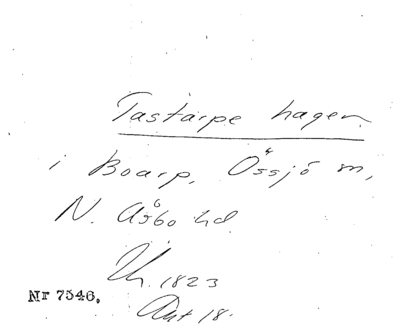 Tastarpe hagen
i Boarp, Össjö m,
N. Åsbo hd.
Uh. 1823
Akt 18.
Nr 7546.